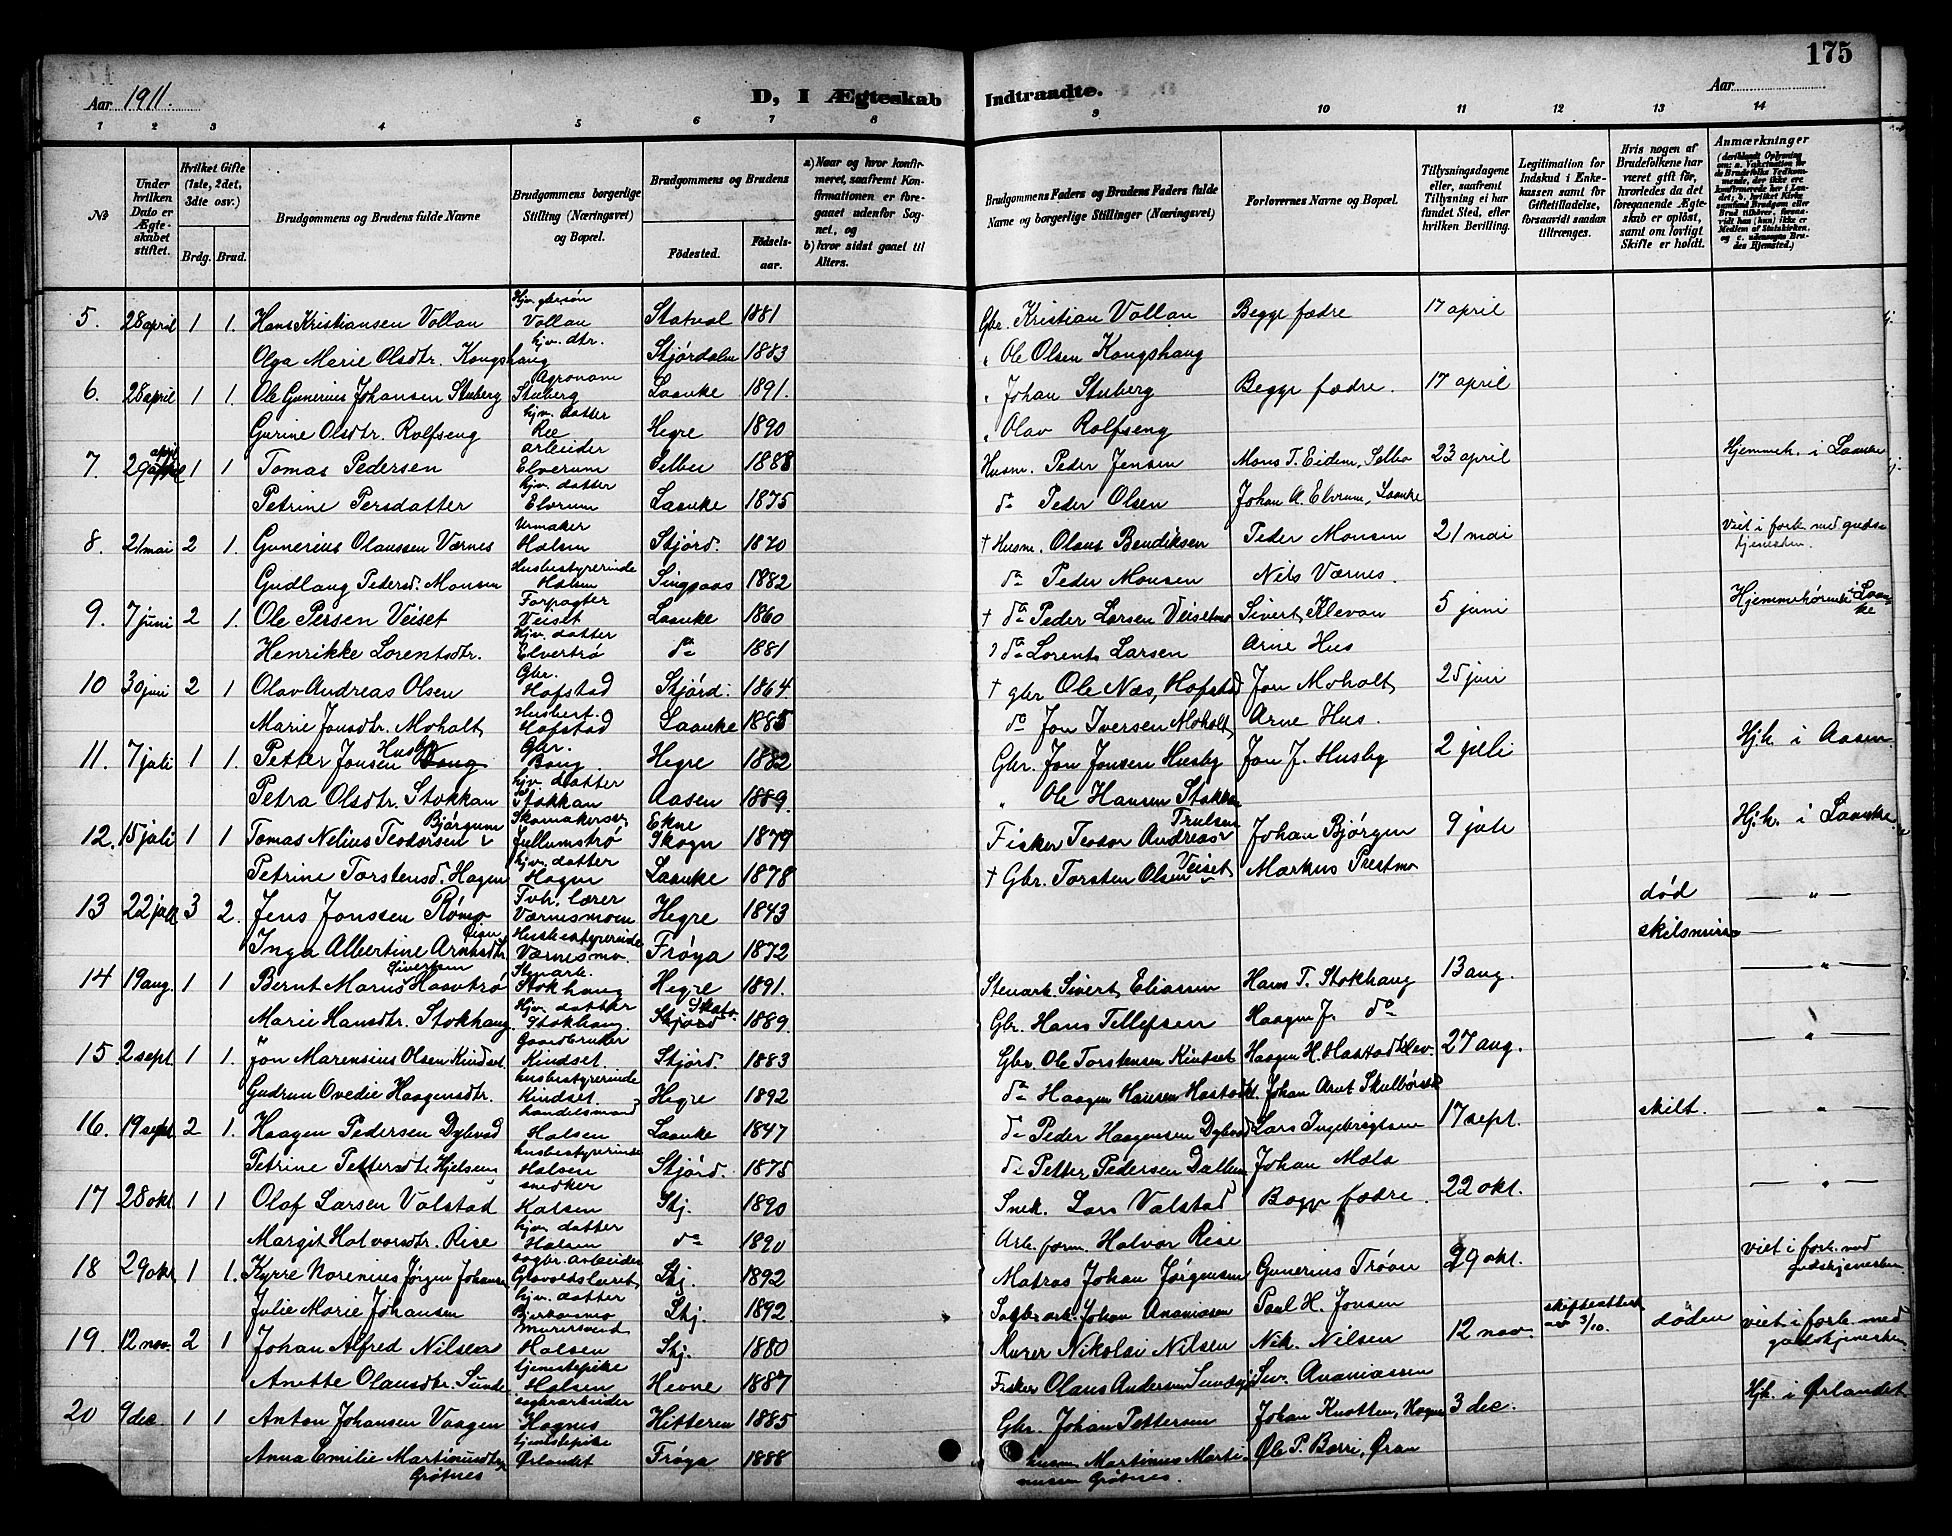 175
Aar 1911.
D, I Ægteskab Indtraadte.
Aar
1 2 3 4 5 6 7 8 9 10 11 12 13 14
№
Under hvilken Dato er Ægteskabet stiftet.
Hvilket Gifte (1ste, 2det, 3die osv.)
Brdg. Brud.
Brudgommens og Brudens fulde Navne
Brudgommens borgerlige Stilling (Næringsvei) og Bopæl.
Brudgommens og Brudens
Födested. Födsels-aar.
a) Naar og hvor konfirmeret, saafremt Konfirmationen er foregaaet udenfor Sognet, og
b) hvor sidst gaaet til Alters.
Brudgommens Faders og Brudens Faders fulde Navne og borgerlige Stillinger (Næringsvei)
Forlovernes Navne og Bopæl.
Tillysningsdagene eller, saafremt Tillysning ei har fundet Sted, efter hvilken Bevilling.
Legitimation for Indskud i Enkekassen samt for Giftetilladelse, forsaavidt saadan tiltrænges.
Hvis nogen af Brudefolkene har været gift før, hvorledes da det foregaaende Ægteskab er oplöst, samt om lovligt Skifte er holdt.
Anmærkninger
5. 28 april 1 1. Hans Kristiansen Vollan Hjv. gbr.søn Vollan Statval 1881 Gbr. Kristian Vollan Begge fædre 17 april
Olga Marie Olsdtr. Kongshaug hjv. dtr. Stjørdalen 1883 " Ole Olsen Kongshaug
6. 28 april 1 1. Ole Gunerius Johansen Stuberg Agronom Stuberg Laanke 1891. " Johan Stuberg Begge fædre. 17 april
Gurine Olsdtr. Rolfseng hjv. datter Ree Hegre 1890 " Olav Rolfseng
7 29 april 1 1 Tomas Pedersen arbeider Elverum Selbu 1888 Husm. Peder Jensen Mons T. Eidem, Selbu 23 april Hjemmeh. i Laanke
Petrine Persdatter hjv. datter Elvrum Laanke 1875 do Peder Olsen Johan A. Elvrum, Laanke
8. 21 mai 2 1. Gunerius Olaussen Værnes Urmaker Halsen Stjørd. 1870 † Husm. Olaus Bendiksen Peder Monsen 21 mai Viet i forb. med gudstjenesten.
Gudlaug Pedersd. Monsen Husbestyrerinde Halsen Singsaas 1882 do Peder Monsen Nils Værnes.
9. 7 juni 2 1. Ole Persen Veiset Forpagter Veiset Laanke 1860 † do Peder Larsen Veisetmo Sivert Klevan 5 juni Hjemmehørende i Laanke
Henrikke Lorentsdtr. Hjv. datter Elvertrø do 1881 do Lorents Larsen Arne Hus
10 30 juni 2 1 Olav Andreas Olsen Gbr. Hofstad Stjørd. 1864 † gbr Ole Næs, Hofstad Jon Moholt 25 juni
Marie Jonsdtr. Moholt Husbest. Hofstad Laanke 1885 do Jon Iversen Moholt Arne Hus.
11. 7 juli 1 1. Petter Jonsen Husby Gbr. Bang Hegre 1882 Gbr. Jon Jonsen Husby Jon J. Husby 2 juli Hjh. i Aasen
Petra Olsdtr. Stokkan hjv. datter Stokkan Aasen 1889. " Ole Hansen Stokkan
12. 15 juli 1 1 Tomas Nelius Teodorsen Bjørgum Skomakersv. Jullumstrø Ekne Skogn 1879 Fisker Teodor Andreas Trulsen Johan Bjørgen 9 juli Hjh. i Laanke
Petrine Torstensd. Hagen hjv. datter Hagen Laanke 1878 † Gbr. Torsten Olsen Veiset Markus Prestmo
13 22 juli 3 2. Jens Jonssen Rømo Fvh. lærer Værnesmoen Hegre 1843 død — " —
Inga Albertine Arntsdtr. Husbestyrerinde Værnesmo. Frøya 1872 skilsmisse —
14 19 aug. 1 1 Bernt Marius Sivertsen Haavtrø Stenarb. Stokhaug Hegre 1891. Stenarb. Sivert Eliassen Hans T. Stokhaug 13 aug. — " —
Marie Hansdtr. Stokhaug Hjv. datter Stokhaug Skatv. Stjørd 1889. Gbr. Hans Tellefsen Haagen J. do
15 2 sept. 1 1. Jon Marensius Olsen Kindset Gaardbruker Kindset Stjørd. 1883 Gbr. Ole Torstensen Kindset Haagen H. Hastadklev. 27 aug. — " —
Gudrun Ovedie Haagensdtr. husbestyrerinde Kindset Hegre 1892 do Haagen Hansen Hastadkl. Johan Arnt Skulbørstad
16. 19 sept 2 1. Haagen Pedersen Dybvad handelsmand Halsen Laanke 1847 do Peder Haagensen Dybvad Lars Ingebrigtsen 17 sept. skilt. — " —
Petrine Pettersdtr. Hjelseng husbestyrerinde Halsen Stjørd. 1875 do Petter Pedersen Dallem Johan Mæla
17 28 okt 1 1 Olaf Larsen Valstad snedker Halsen Stj. 1890 Snek. Lars Valstad Begge fædre. 22 okt. — " —
Margit Halvorsdtr. Rise hjv. datter Halsen do 1890 Arb. form. Halvor Rise
18 29 okt 1 1. Kyrre Norenius Jørgen Johansen sagbr. arbeider Stj. 1892 Matros Johan Jørgensen Gunerius Trøan 29 okt. viet i forb. med gudstjenesten.
Julie Marie Johansen hjv. datter Berkasmo Stj. 1892 Sagbr. arb. Johan Ananiasen Paul H. Jonsen
19. 12 nov. 2 1 Johan Alfred Nilsen murersvend Halsen Stj. 1880 Murer Nikolai Nilsen Nik. Nilsen 12 nov. skifteattest av 3/10. døden viet i forb. med gudstjenesten
Anette Olausdtr. Sunde tjenestepike Halsen Hevne 1887 Fisker Olaus Andersen Sev. Ananiassen
20 9 dec 1 1 Anton Johansen Vaagen sagbrarbeider Hognes Hitteren 1885 Gbr. Johan Pettersen Johan Knotten, Hognes 3 dec. Hjh. i Ørlandet
Anna Emilie Martinusdtr. Grøtnes tjenestepike Ørlandet Frøya 1888 husm. Martinius Martinusen Grøtnes. Ole P. Borri, Øran